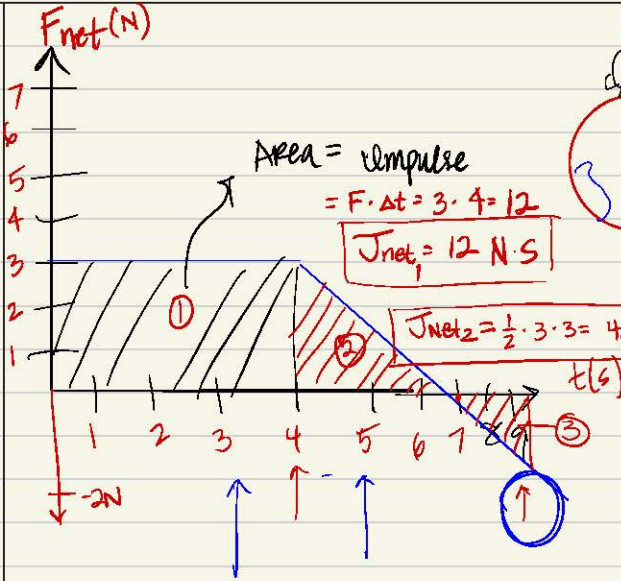 Fnet (N)
7
6
5
4
3
2
1
Area = impulse
= F · Δt = 3 · 4 = 12
Jnet₁ = 12 N·S
①
②
JNet₂ = ½ · 3 · 3 = 4
t(s)
1 2 3 4 5 6 7 8 9
③
-2N